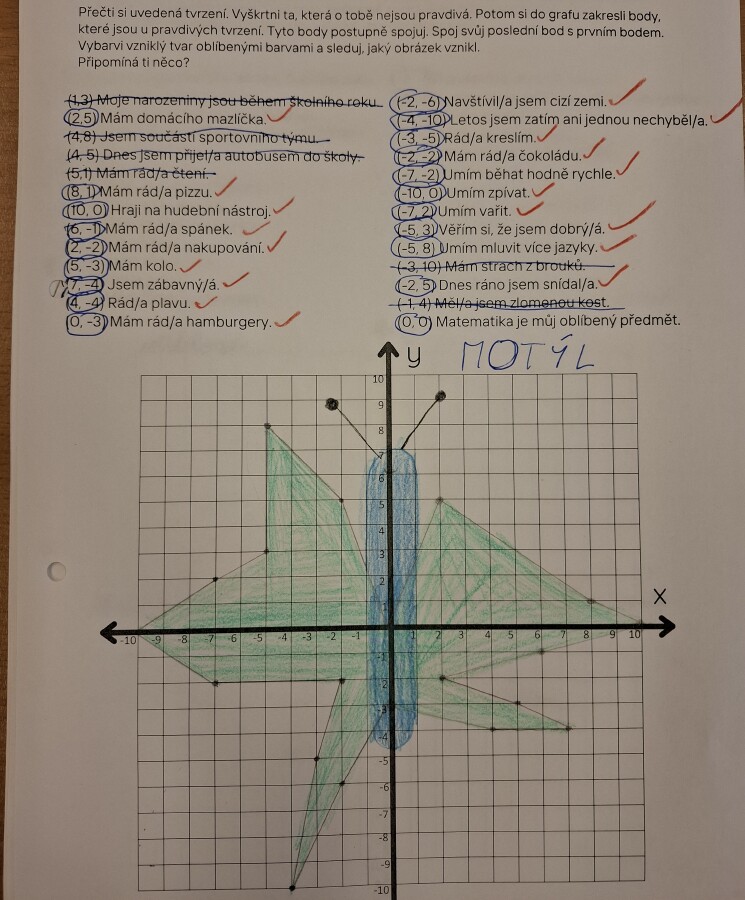 Přečti si uvedená tvrzení. Vyškrtni ta, která o tobě nejsou pravdivá. Potom si do grafu zakresli body,
které jsou u pravdivých tvrzení. Tyto body postupně spojuj. Spoj svůj poslední bod s prvním bodem.
Vybarvi vzniklý tvar oblíbenými barvami a sleduj, jaký obrázek vznikl.
Připomíná ti něco?
(1,3) Moje narozeniny jsou během školního roku.
(2,5) Mám domácího mazlíčka.
(4,8) Jsem součástí sportovního týmu.
(4, 5) Dnes jsem přijel/a autobusem do školy.
(5,1) Mám rád/a čtení.
(8, 1) Mám rád/a pizzu.
(10, 0) Hraji na hudební nástroj.
(6, -1) Mám rád/a spánek.
(2, -2) Mám rád/a nakupování.
(5, -3) Mám kolo.
(7, -4) Jsem zábavný/á.
(4, -4) Rád/a plavu.
(0, -3) Mám rád/a hamburgery.
(-2, -6) Navštívil/a jsem cizí zemi.
(-4, -10) Letos jsem zatím ani jednou nechyběl/a.
(-3, -5) Rád/a kreslím.
(-2, -2) Mám rád/a čokoládu.
(-7, -2) Umím běhat hodně rychle.
(-10, 0) Umím zpívat.
(-7, 2) Umím vařit.
(-5, 3) Věřím si, že jsem dobrý/á.
(-5, 8) Umím mluvit více jazyky.
(-3, 10) Mám strach z brouků.
(-2, 5) Dnes ráno jsem snídal/a.
(-1, 4) Měl/a jsem zlomenou kost.
(0, 0) Matematika je můj oblíbený předmět.
y MOTÝL
10
9
8
7
6
5
4
3
2
1
x
-10 -9 -8 -7 -6 -5 -4 -3 -2 -1 1 2 3 4 5 6 7 8 9 10
-1
-2
-3
-4
-5
-6
-7
-8
-9
-10